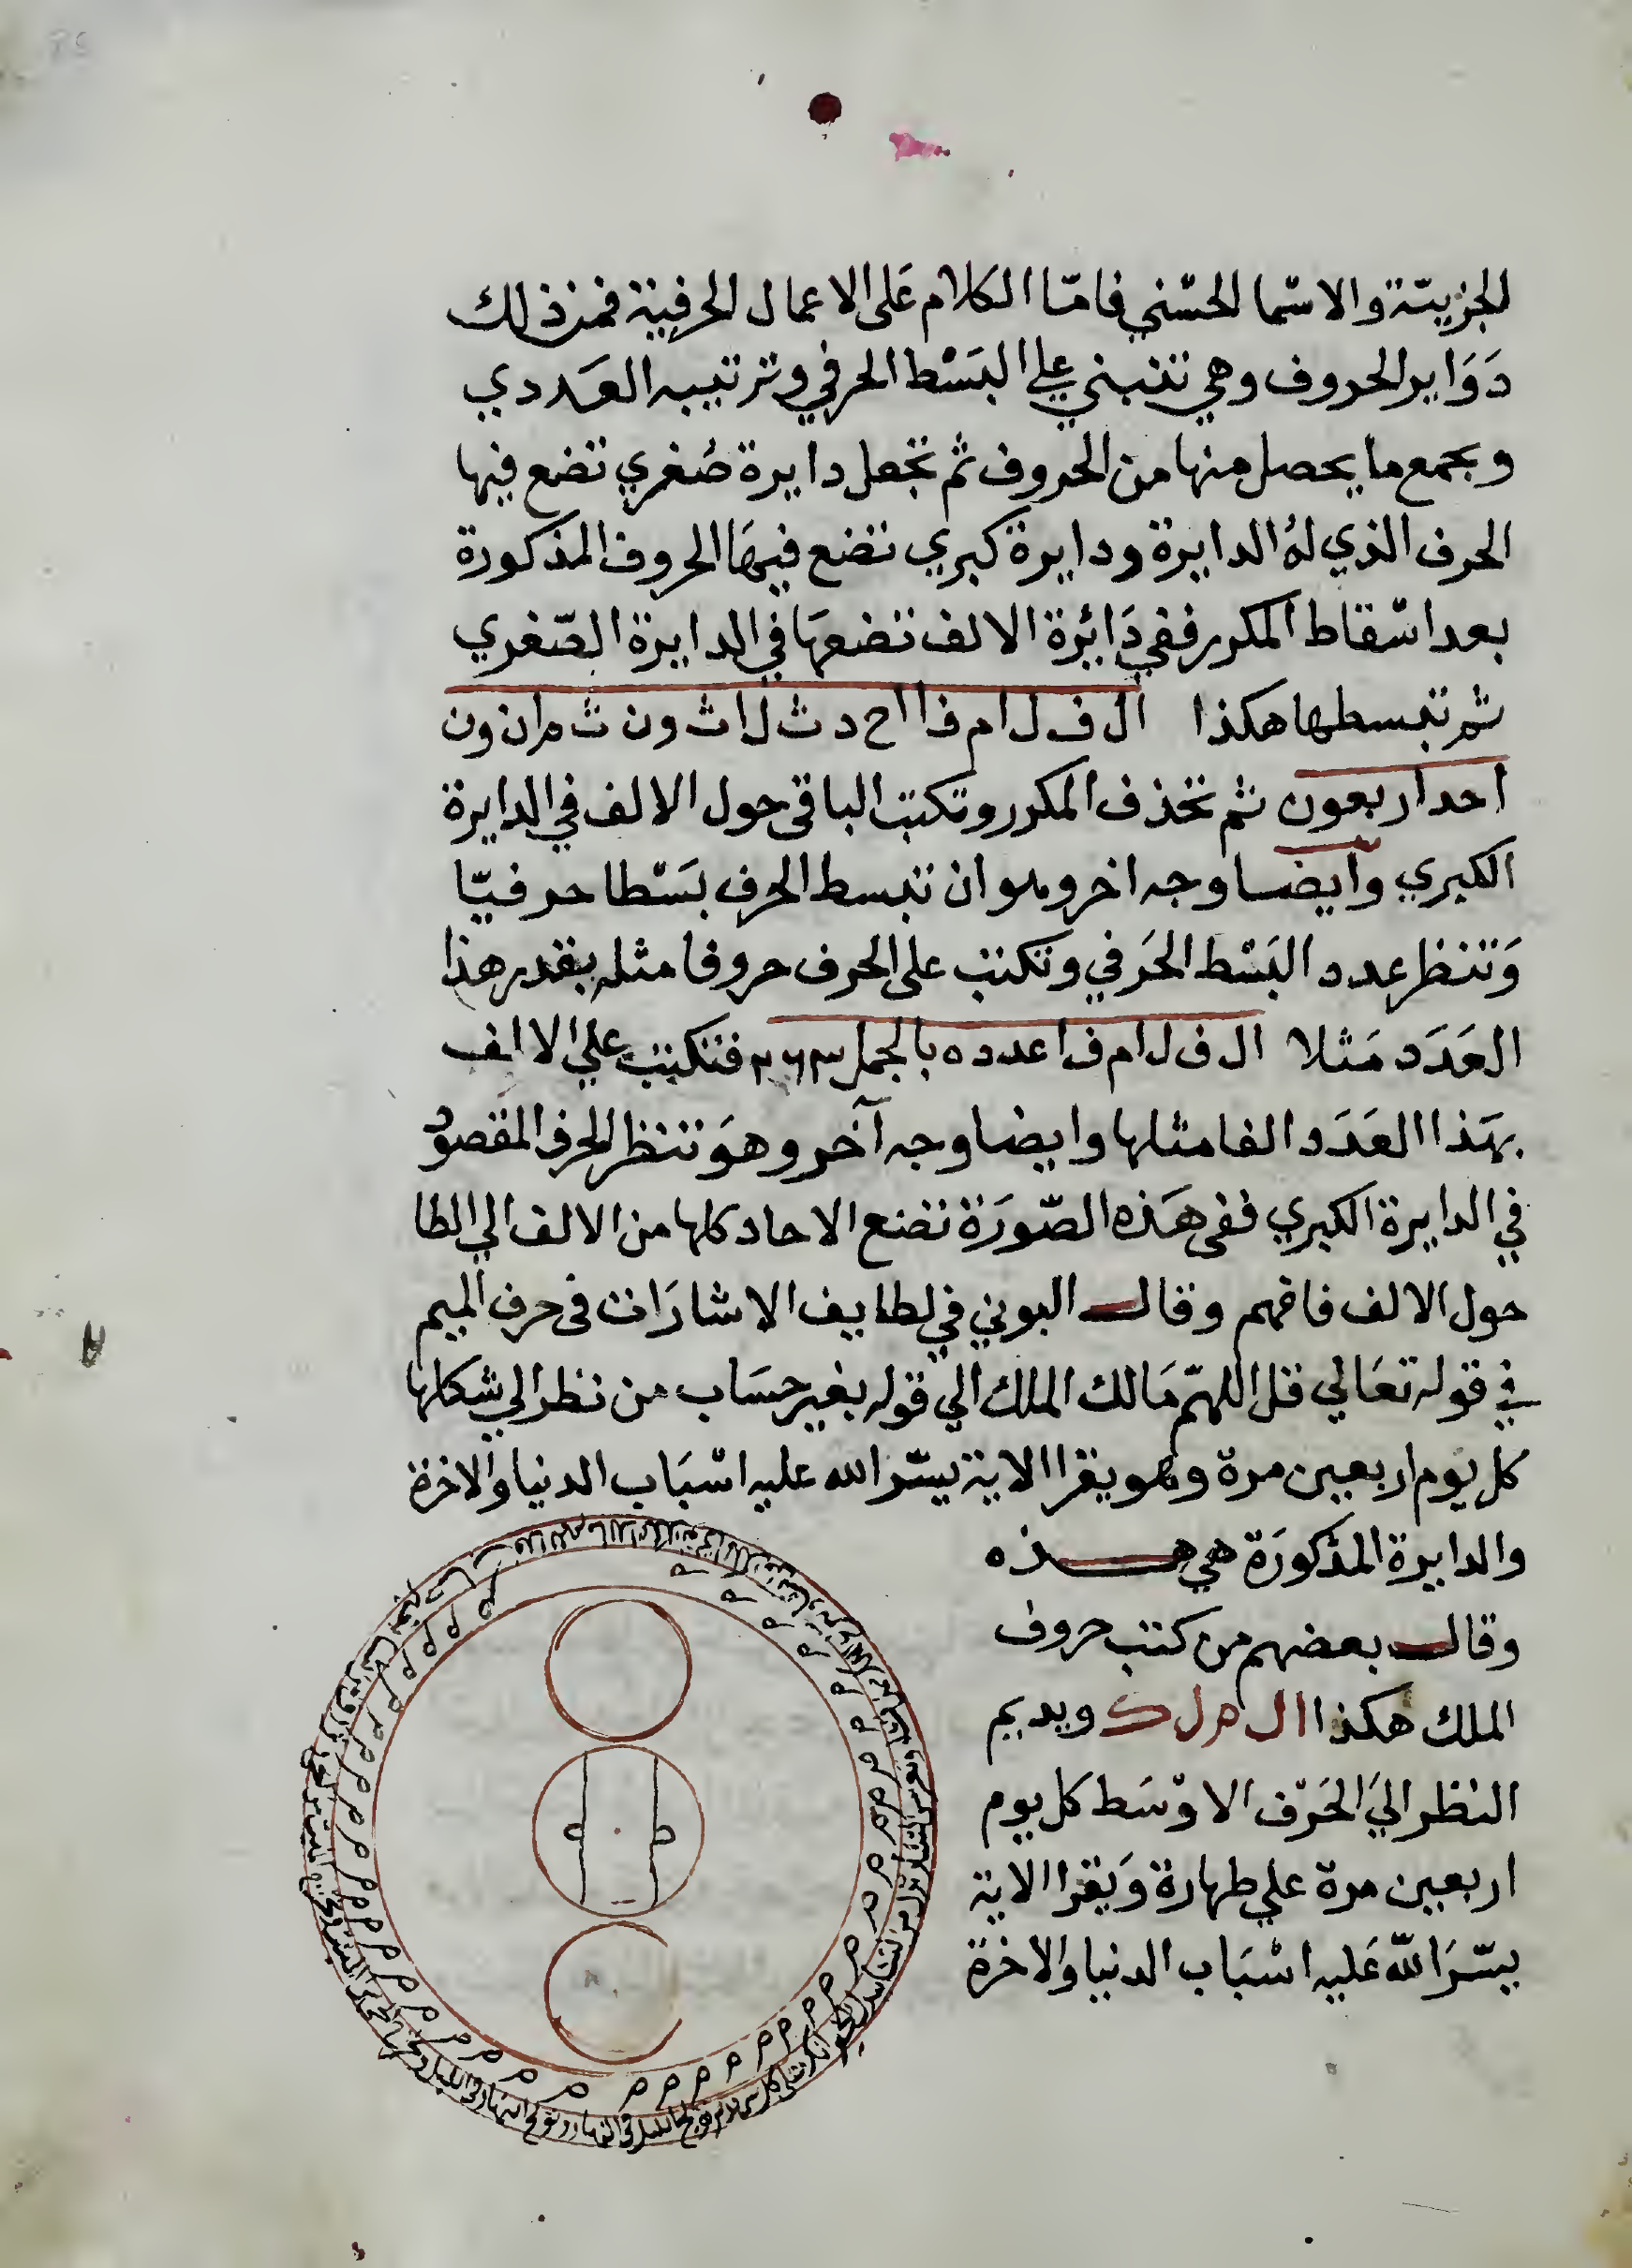 الجزيية والاسما الحسني فامّا الكلام على الاعمال الحرفية فمن ذلك
دَوَاير الحروف وهي تنبني علي البَسْط الحرفي وترتيبه العددي
ويجمع ما يحصل منها من الحروف ثم تجعل دايرة صُغري تضع فيها
الحرف الذي لهُ الدايرة ودايرة كبري تضع فيهَا الحروف المذكورة
بعد اسْقاط المكرر ففي دَائرة الالف تضعهَا في الدايرة الصّغري
ثم تبسطها هكذا ا ل ف ل ا م ف ا ا ح د ث ل ا ث و ن ث م ا ن و ن
احد اربعون ثم تخذف المكرر وتكتب الباقي حول الالف في الدايرة
الكبري وأيضا وجه اخر وهو ان تبسط الحرف بَسْطا حرفيّا
وَتنظر عدد البَسْط الحَرفي وتكتب على الحرف حروفا مثله بقدر هذا
العَدَد مَثلا ا ل ف ل ا م ف ا عدده بالجمل فتكتب علي الالف
بهَذا العَدَد الفا مثلها وايضا وجه آخر وهوَ تنظر الحرف المقصودُ
في الدايرة الكبري ففي هَذه الصّورَة تضع الاحاد كلها من الالف الي الطا
حول الالف فافهم وقال البوني في لطايف الاشارَات في حرف الميم
في قوله تعَالي قل اللهمّ مَالك الملك الي قوله بغير حسَاب من نظر الي شكلها
كل يوم اربعين مرة وهو يقرا الاية يسّر الله عليه اسْبَاب الدنيا والاخرة
والدايرة المذكورَة هي هذه
وقال بعضهم من كتب حروف
الملك هكذا ا ل م ل ك ويديم
النظر الي الحَرْف الاوْسَط كل يوم
اربعين مرة علي طهارة وَيقرا الاية
يسّرَ اللّه عَليه اسْبَاب الدنيا والاخرة